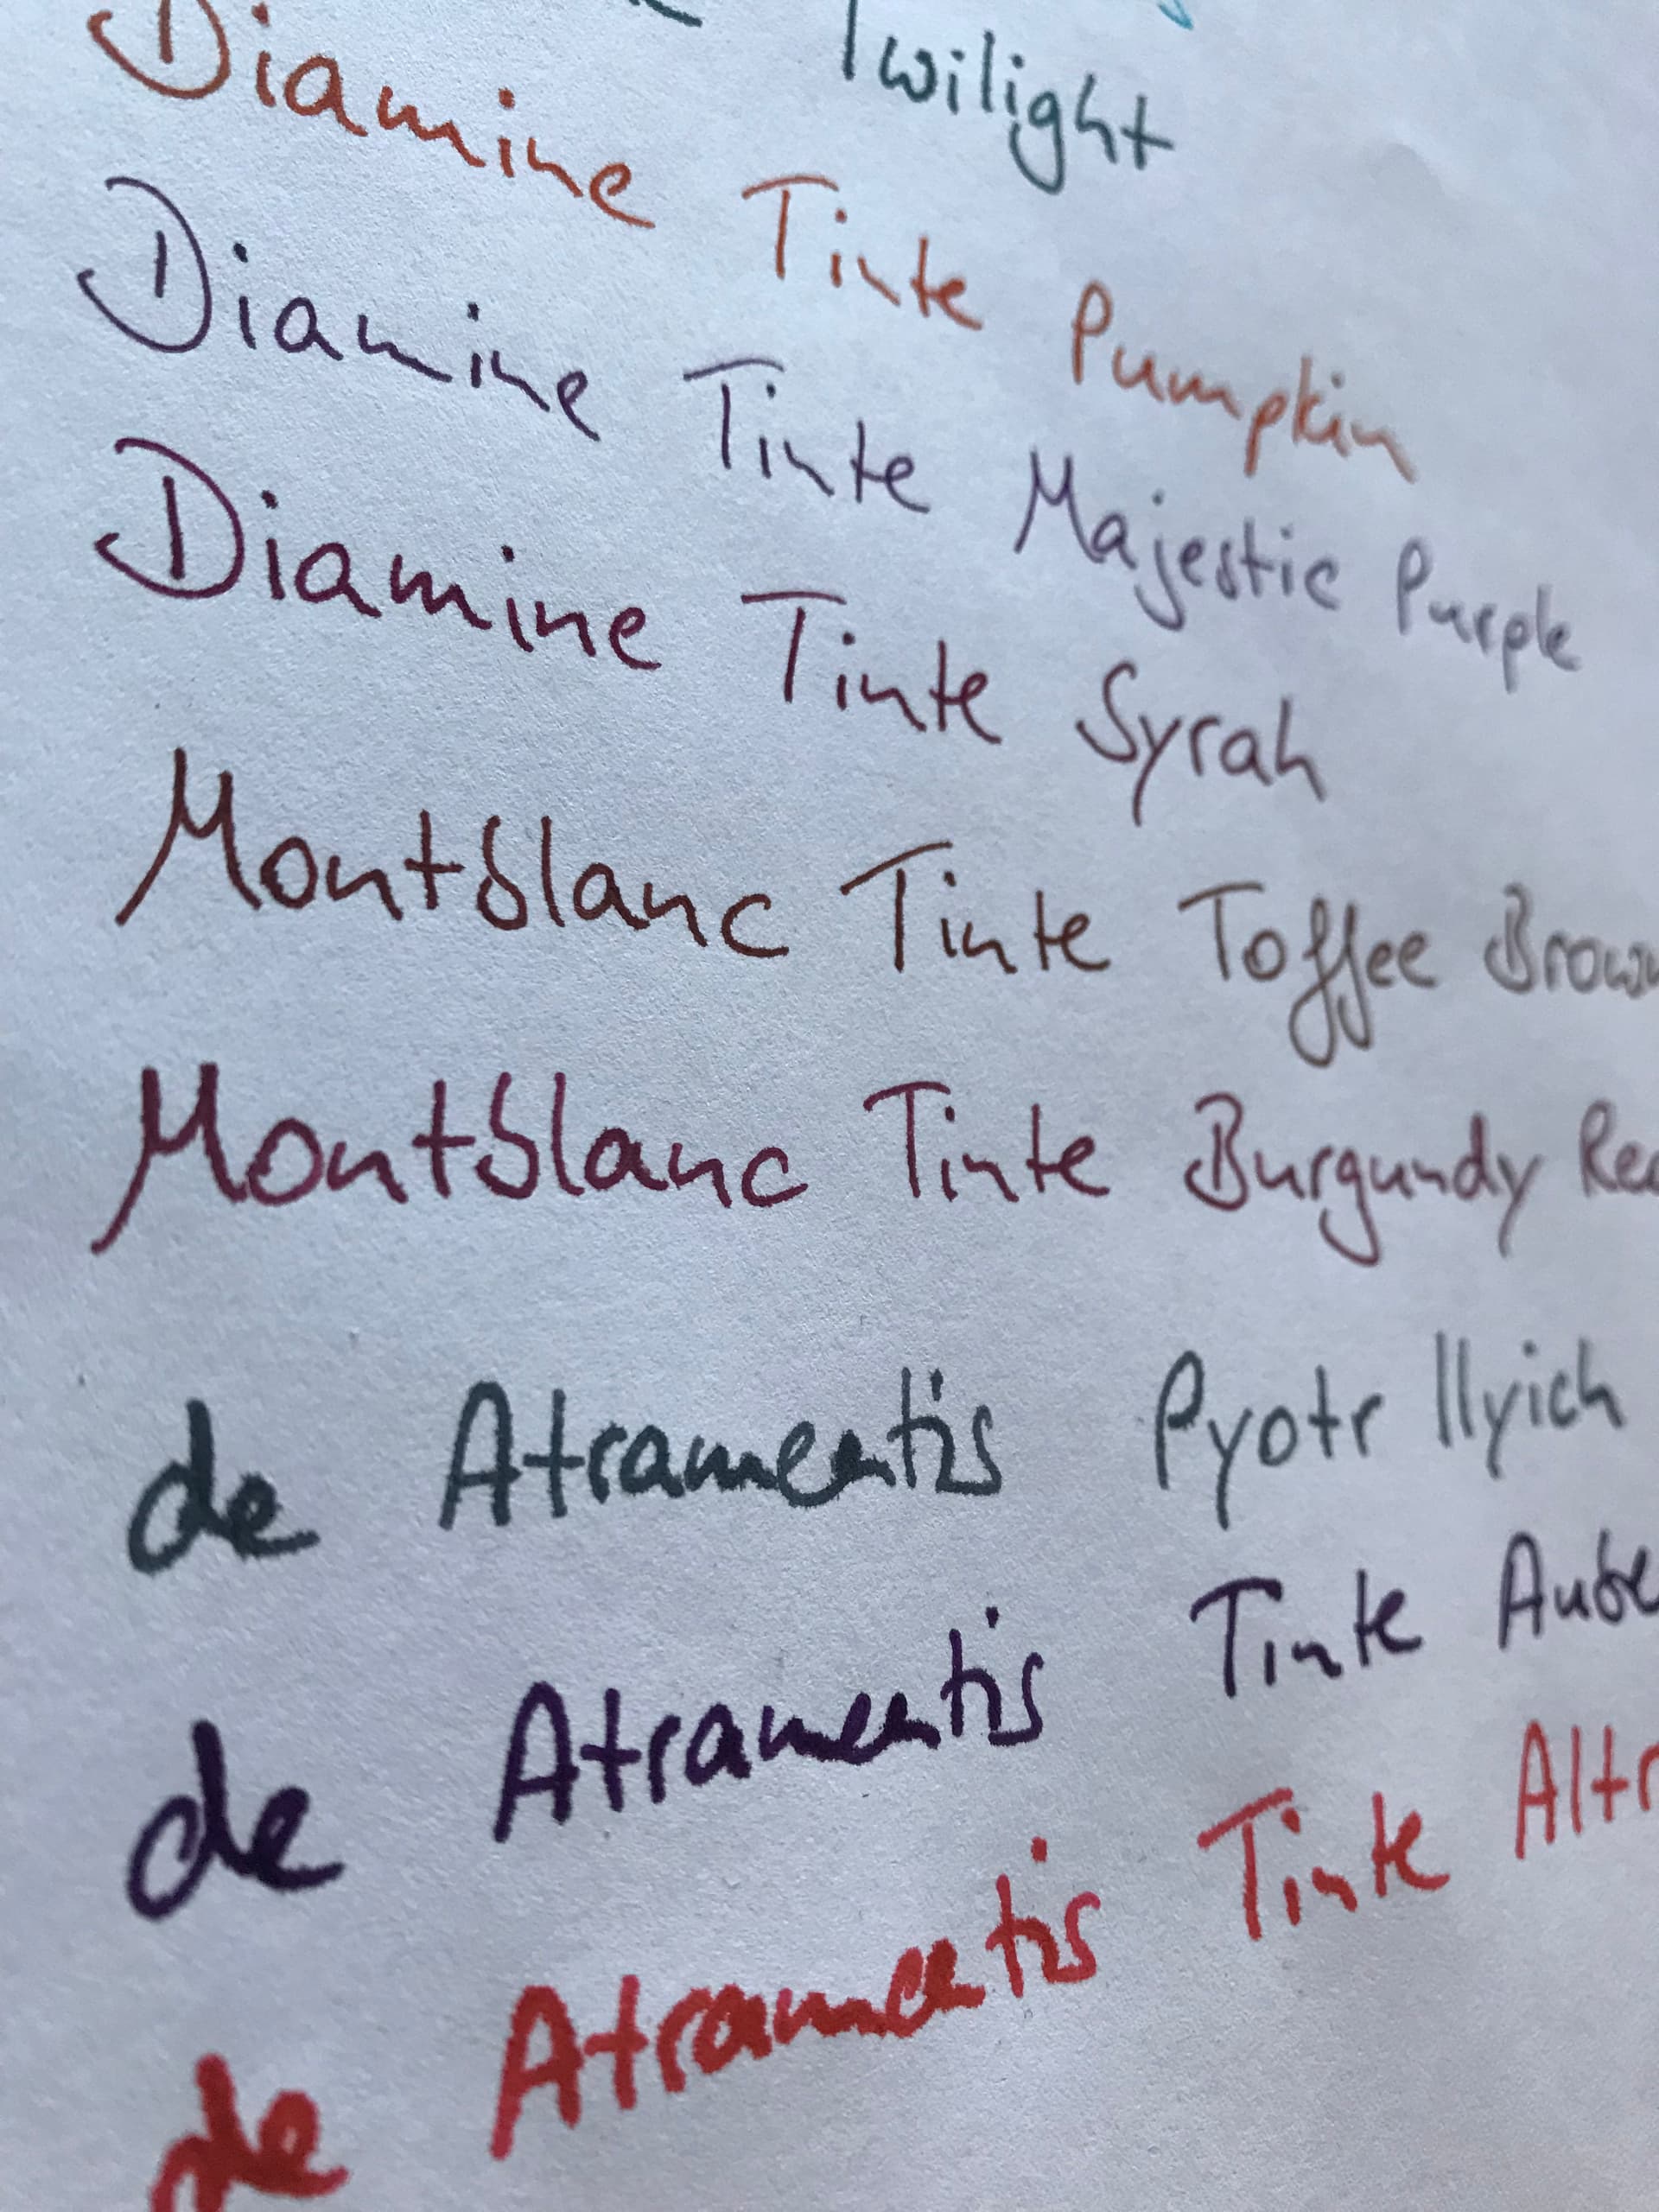 Twilight
Diamine Tinte Pumpkin
Diamine Tinte Majestic Purple
Diamine Tinte Syrah
Montblanc Tinte Toffee Brown
Montblanc Tinte Burgundy Red
de Atramentis Pyotr Ilyich
de Atramentis Tinte Aube
de Atramentis Tinte Altr